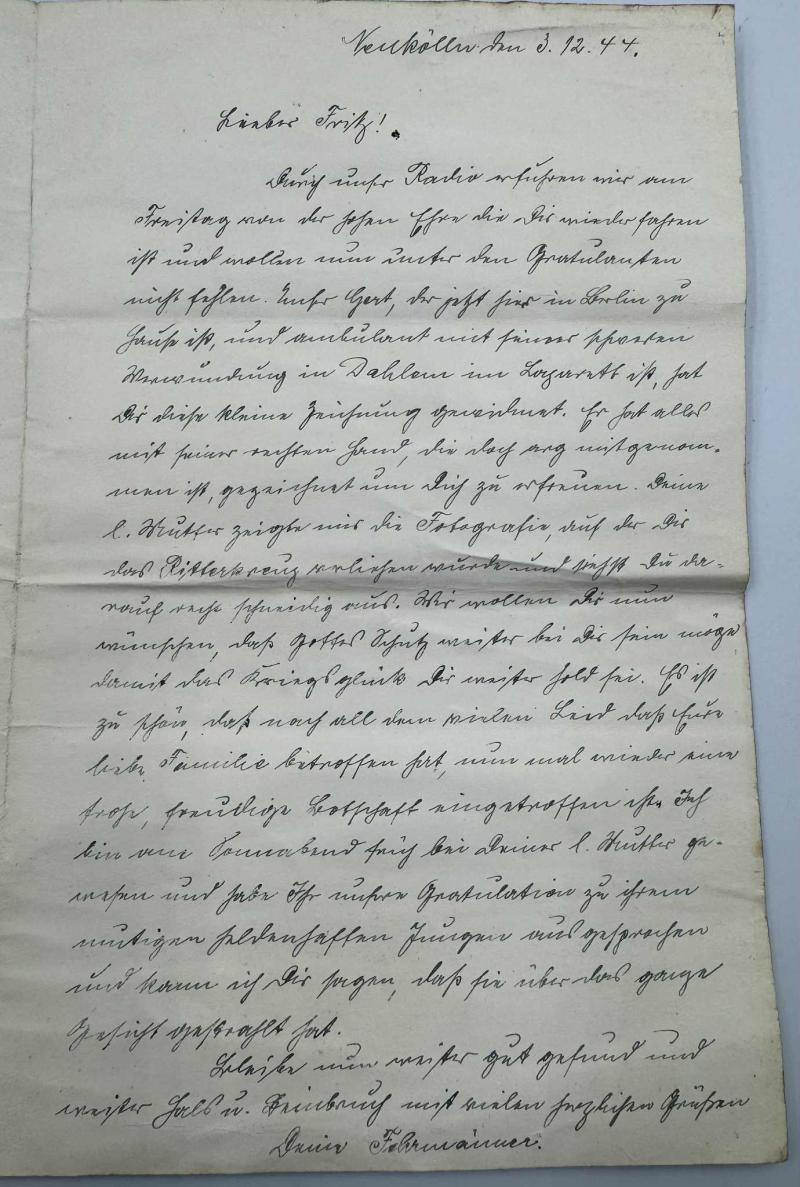 Neukölln den 3. 12. 44.
Lieber Fritz!
Durch unser Radio erfuhren wir am
Freitag von der hohen Ehre die Dir wiederfahren
ist und wollen nun unter den Gratulanten
nicht fehlen. Unser Gert, der jetzt hier in Berlin zu
Hause ist, und ambulant mit seiner schweren
Verwundung in Dahlem im Lazarett ist, hat
Dir diese kleine Zeichnung gewidmet. Er hat alles
mit seiner rechten Hand, die doch arg mitgenom-
men ist, gezeichnet um Dich zu erfreuen. Deine
l. Mutter zeigte mir die Fotografie, auf der Dir
das Ritterkreuz verliehen wurde und siehst Du da-
rauf recht schneidig aus. Wir wollen Dir nun
wünschen, daß Gottes Schutz weiter bei Dir sein möge
damit das Kriegsglück Dir weiter hold sei. Es ist
zu schön, daß nach all dem vielen Leid daß Eure
liebe Familie betroffen hat, nun mal wieder eine
frohe, freudige Botschaft eingetroffen ist. Ich
bin am Sonnabend früh bei Deiner l. Mutter ge-
wesen und habe Ihr unsere Gratulation zu ihrem
mutigen heldenhaften Jungen ausgesprochen
und kann ich Dir sagen, daß sie über das ganze
Gesicht gestrahlt hat.
Bleibe nun weiter gut gesund und
weiter Hals u. Beinbruch mit vielen herzlichen Grüßen
Deine